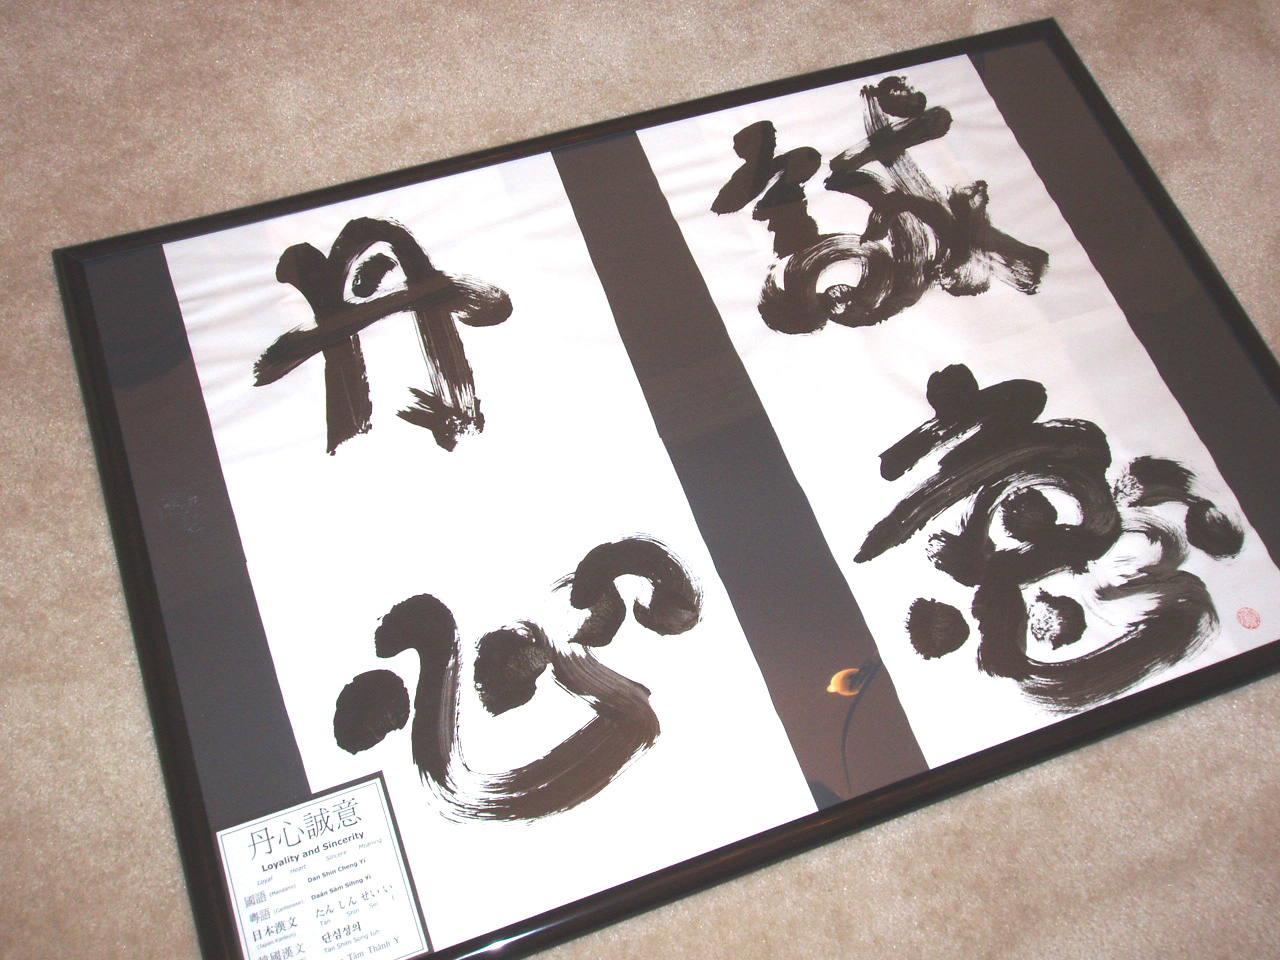 誠意
丹心
丹心誠意
Loyality and Sincerity
Loyal Heart Sincere Meaning
國語 (Mandarin) Dan Shin Cheng Yi
粵語 (Cantonese) Daān Sām Sihng Yi
日本漢文 たん しん せい い
(Japan Kanbun) Tan Shin Sei I
韓國漢文 단심성의
Tan Shim Song Iuh
Tâm Thành Ý